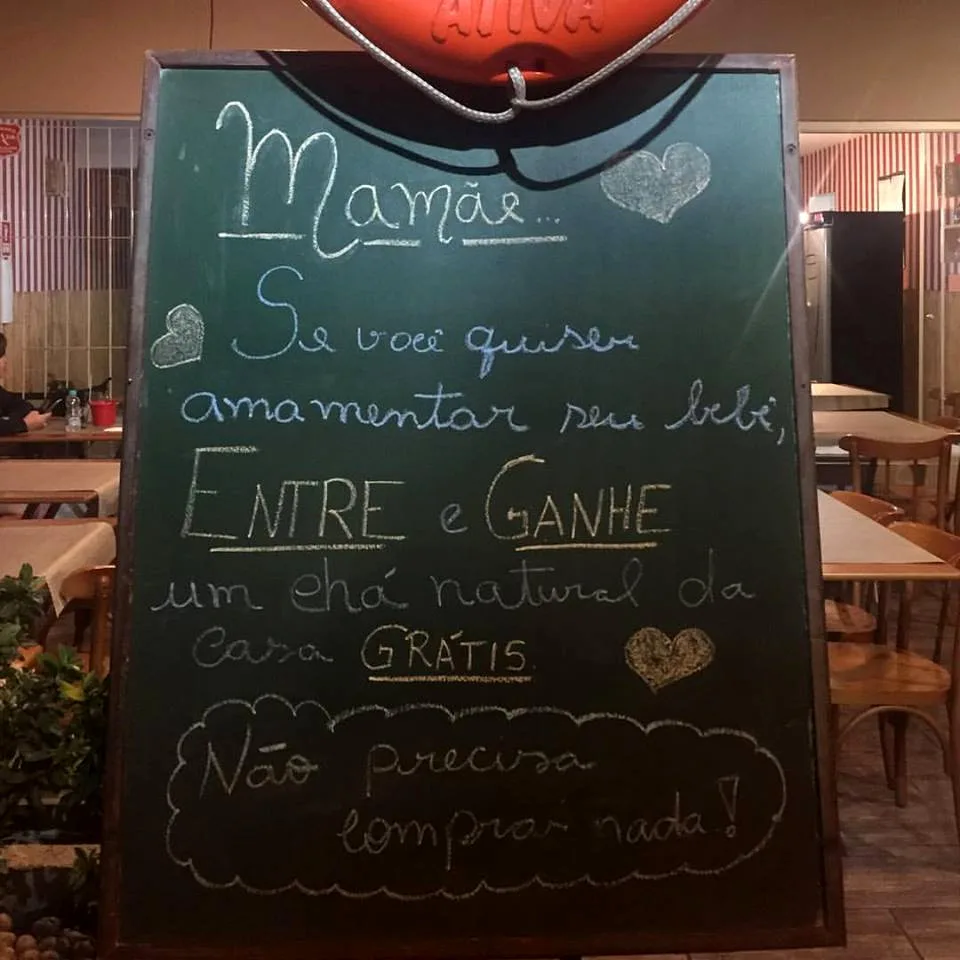 ATIVA
Mamãe...
Se você quiser
amamentar seu bebê,
ENTRE e GANHE
um chá natural da
casa GRÁTIS
Não precisa
comprar nada!